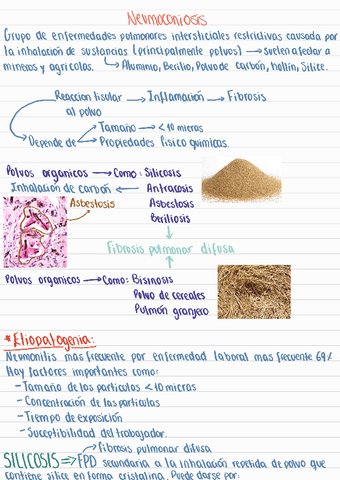 Neumoconiosis
Grupo de enfermedades pulmonares intersticiales restrictivas causada por
la inhalación de sustancias (principalmente polvos) → suelen afectar a
mineros y agricolas. → Aluminio, Berilio, Polvo de carbón, hollín, Silice.
Reaccion tisular → Inflamación → Fibrosis
al polvo
Tamaño → <10 micras
Depende de → Propiedades fisico químicas.
Polvos organicos → Como: Silicosis
Inhalación de carbón ← Antracosis
Asbestosis
Asbestosis
Beriliosis
Fibrosis pulmonar difusa
Polvos organicos → Como: Bisinosis
Polvo de cereales
Pulmón granjero
*Etiopatogenia:
Neumonitis mas frecuente por enfermedad laboral mas frecuente 69%
Hay factores importantes como:
- Tamaño de las particulas <10 micras
- Concentración de las particulas
- Tiempo de exposición
- Suceptibilidad del trabajador.
→ Fibrosis pulmonar difusa
SILICOSIS ⇒ FPD secundaria a la inhalación repetida de polvo que
contiene silice en forma cristalina. Puede darse por: